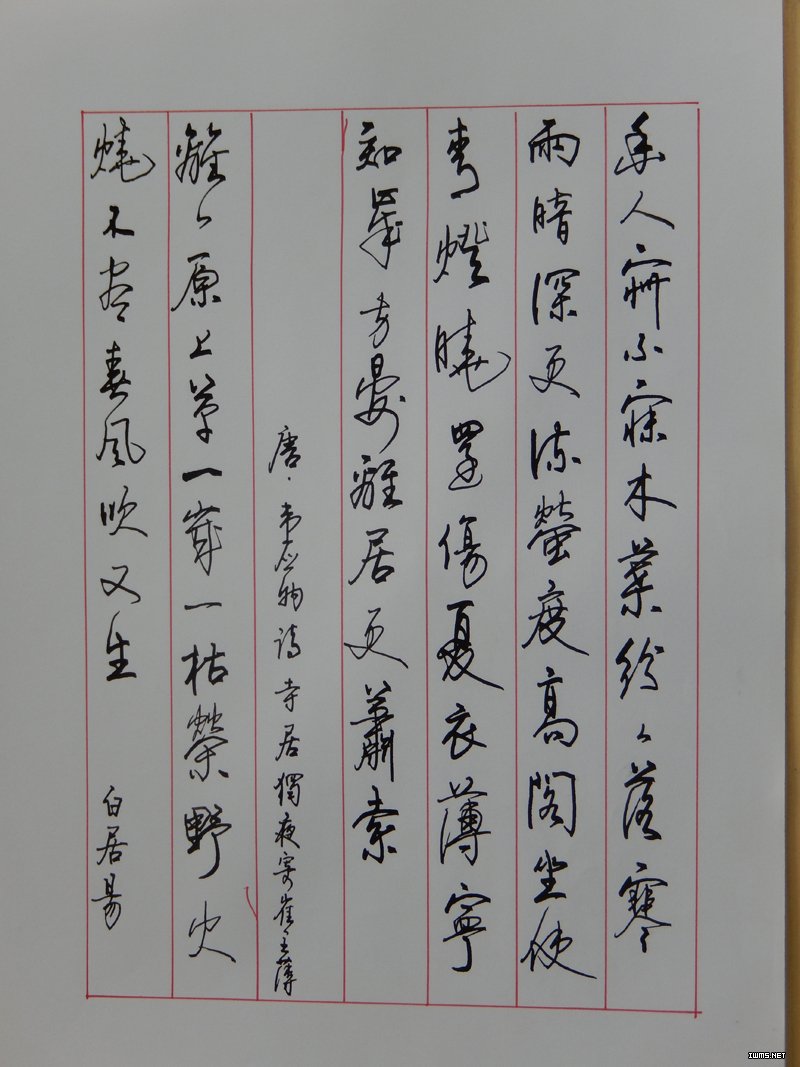 幽人寂不寐木葉紛々落寒
雨暗深更流螢度高閣坐使
青燈曉還傷夏衣薄寧
知歲方晏離居更蕭索
唐·韦应物詩寺居獨夜寄崔主薄
離々原上草一歲一枯榮野火
燒不盡春風吹又生
白居易
IWMS.NET